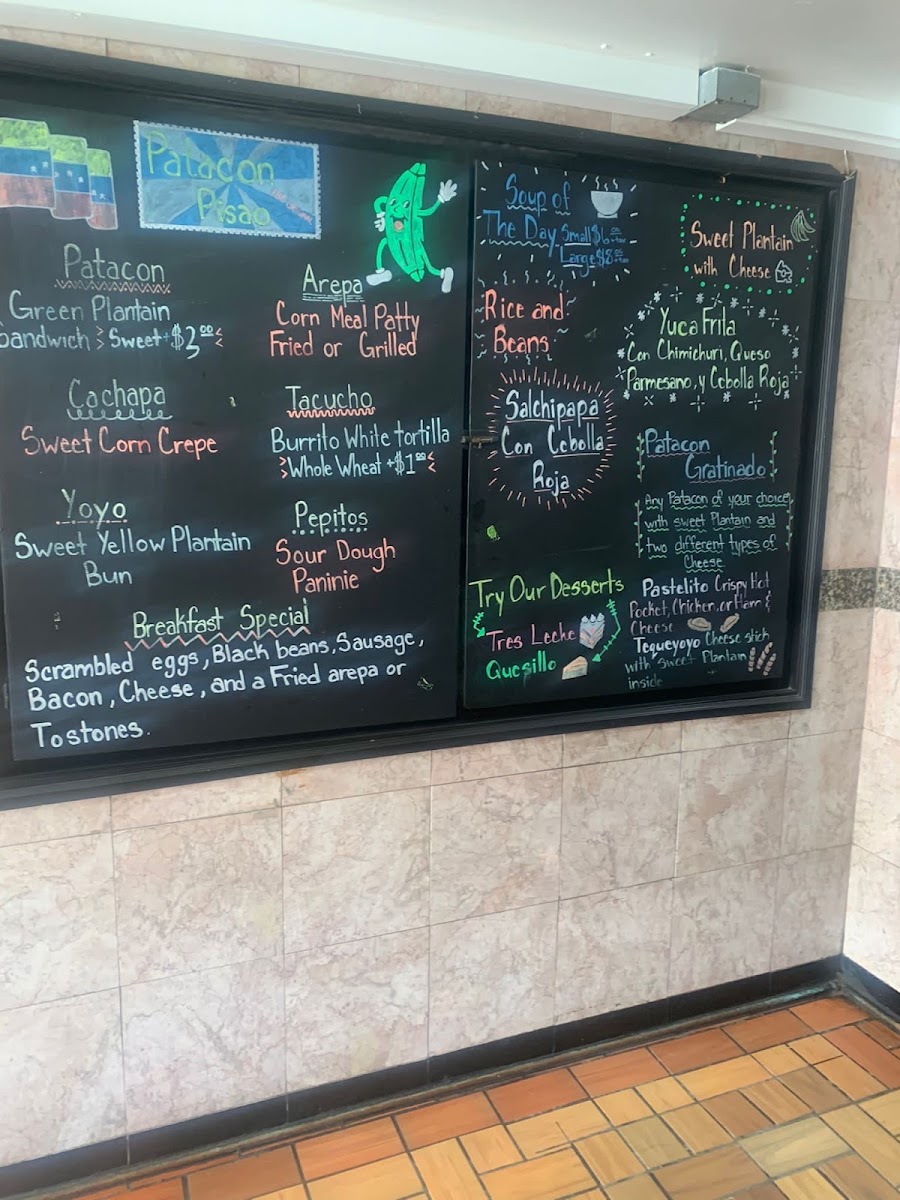 Patacon
Pisao
Patacon
Green Plantain
Sandwich > Sweet + $2.00 <
Arepa
Corn Meal Patty
Fried or Grilled
Cachapa
Sweet Corn Crepe
Tacucho
Burrito White tortilla
> Whole Wheat +$1.00 <
Yoyo
Sweet Yellow Plantain
Bun
Pepitos
Sour Dough
Paninie
Breakfast Special
Scrambled eggs, Black beans, Sausage,
Bacon, Cheese, and a Fried arepa or
Tostones.
Soup of
The Day Small $6.00 +tax
Large $8.00 +tax
Rice and
Beans
Salchipapa
Con Cebolla
Roja
Try Our Desserts
Tres Leche
Quesillo
Sweet Plantain
with Cheese
Yuca Frita
Con Chimichuri, Queso
Parmesano, y Cebolla Roja
Patacon
Gratinado
Any Patacon of your choice
with sweet Plantain and
two different types of
Cheese
Pastelito Crispy Hot
Pocket, Chicken, or Ham &
Cheese
Tequeyoyo Cheese stich
with sweet Plantain
inside